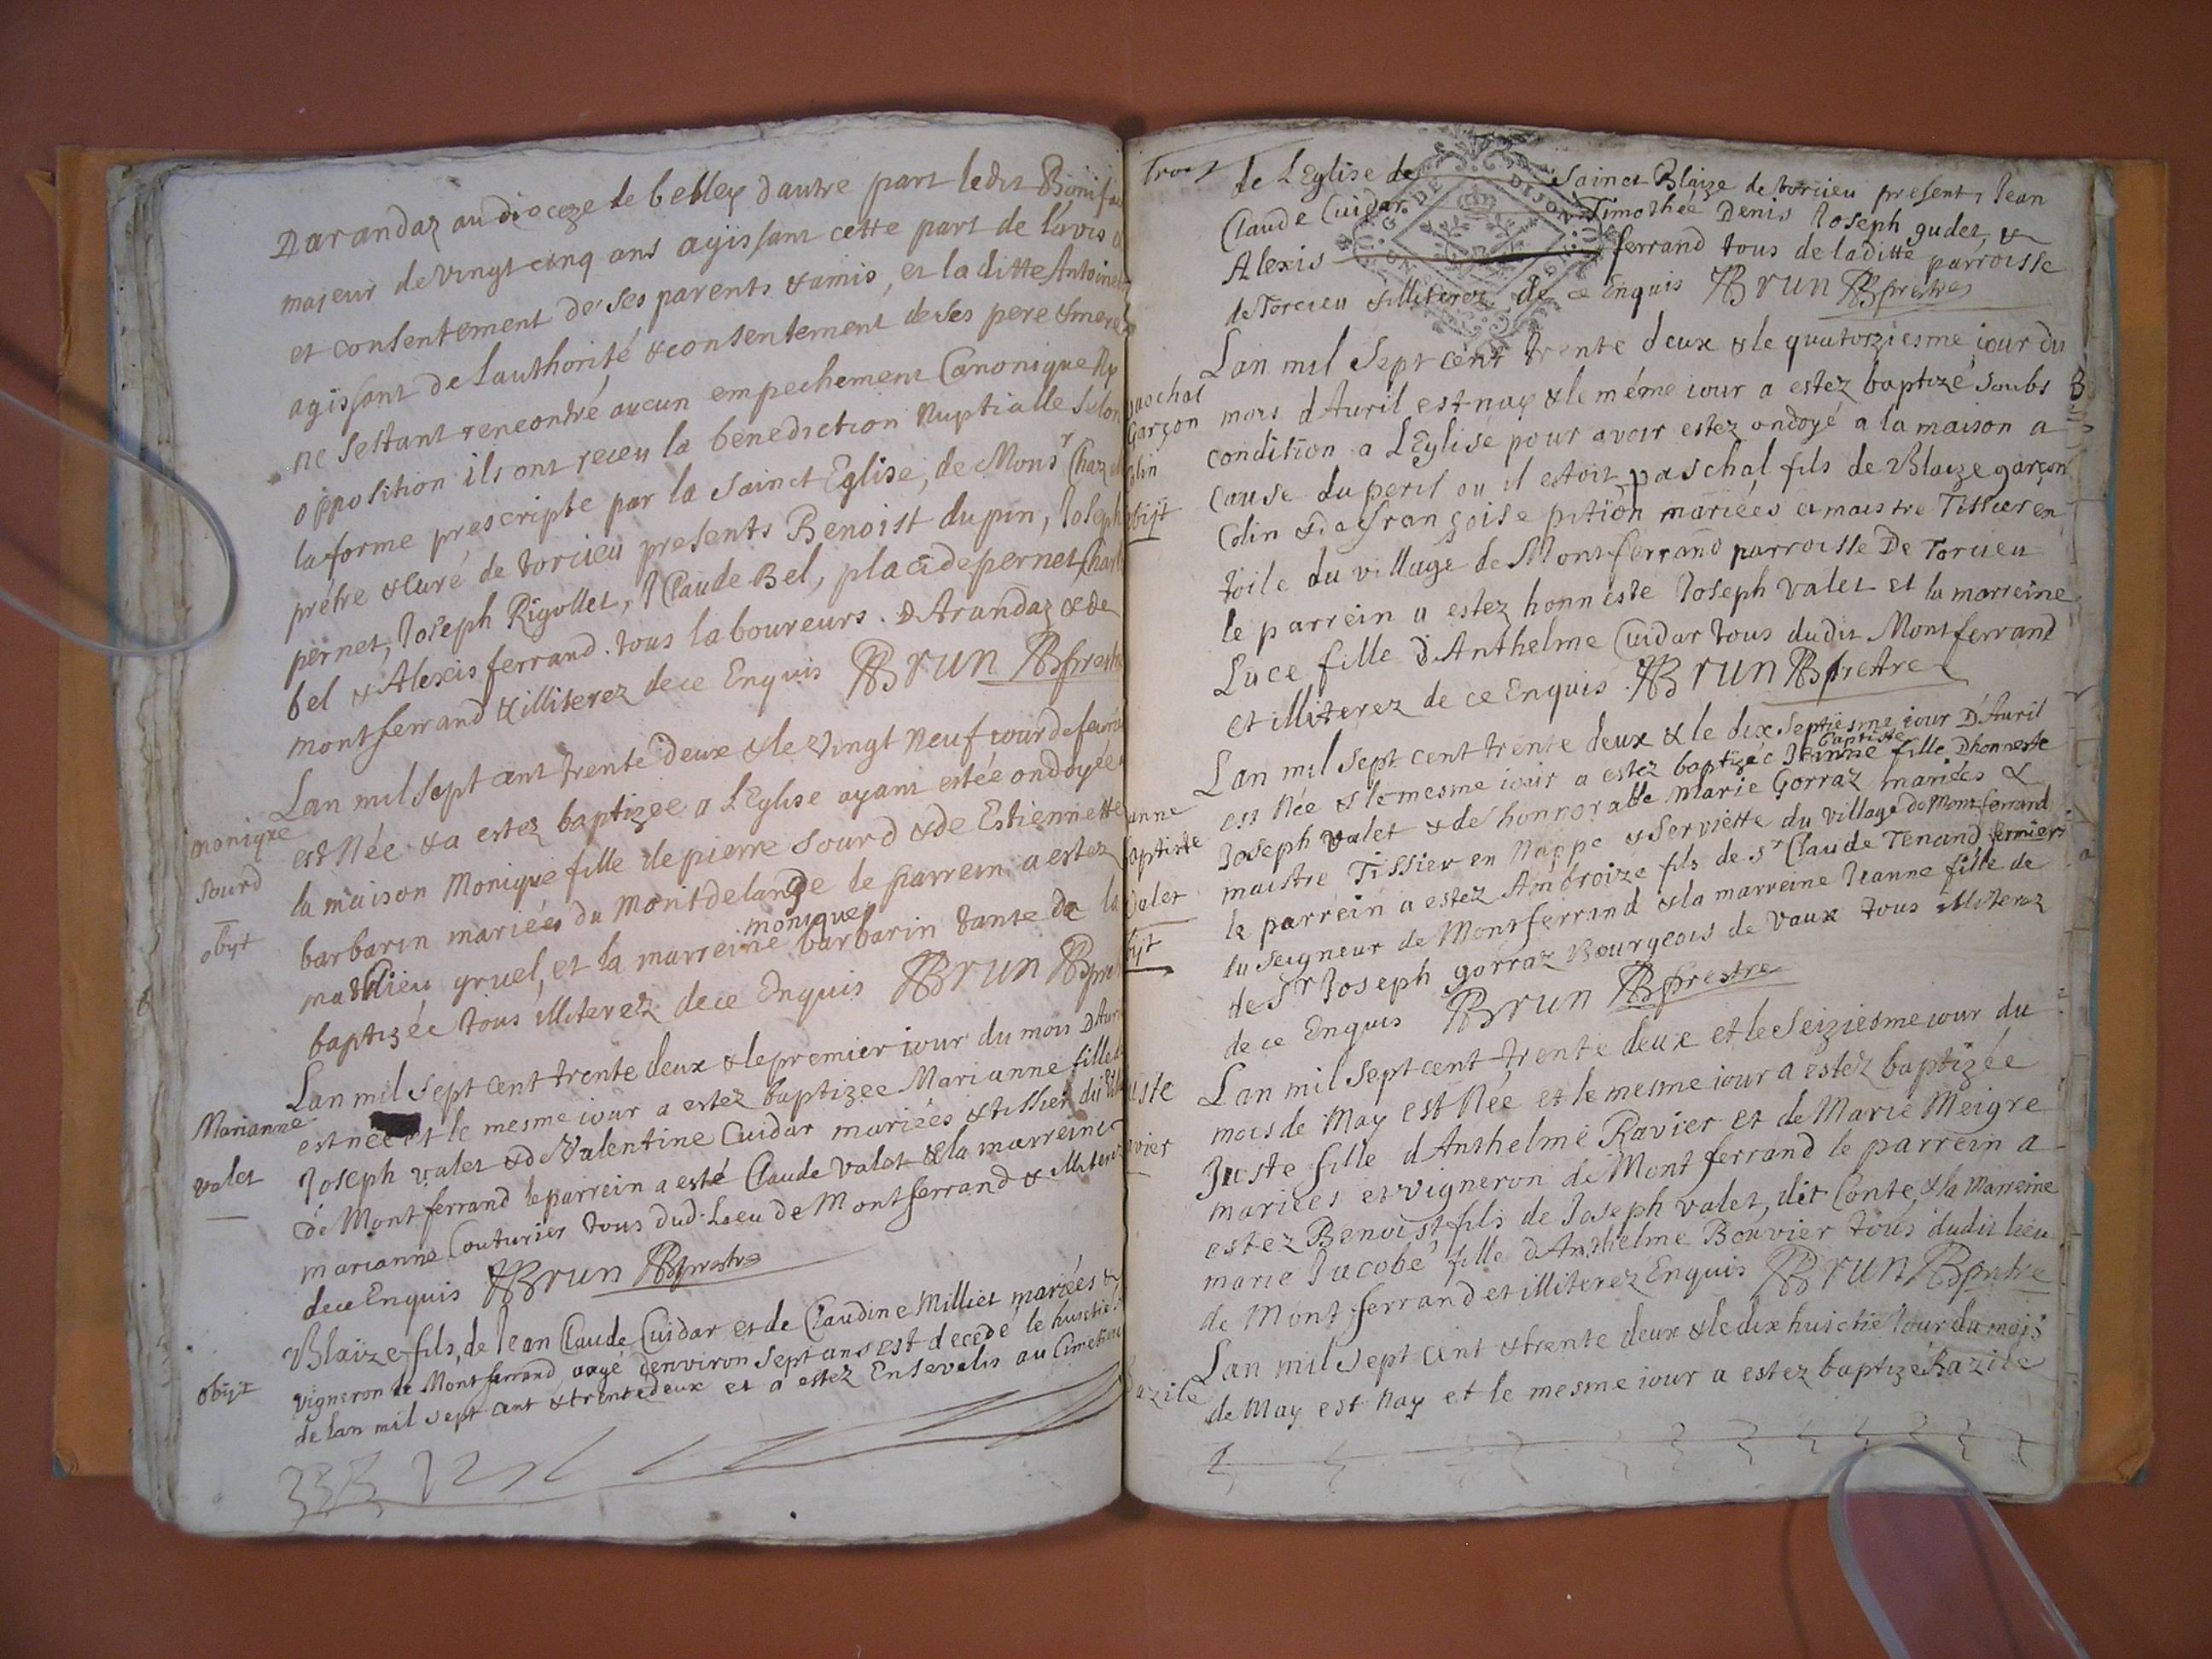 Darandaz au dioceze de belley d'autre part ledit Bonifa
majeur de vingt cinq ans agissant cette part de l'avis &
et consentement de ses parents & amis, et la ditte Antoine
agissant de l'authorité & consentement de ses pere & mere
ne sestant rencontré aucun empechement Canonique Ny
opposition ils ont receu la benediction Nuptialle selon
la forme prescripte par la Sainct Eglise, de Monsr Chaz
prétre & Curé de torcieu presents Benoist dupin, Joseph
pernet, Joseph Rigollet, J Claude Bel, placide pernet, Char
bel & Alexis ferrand. tous laboureurs. D Arandaz & de
montferrand & illiterez de ce Enquis Brun prestre
Lan mil sept cent trente deux & le vingt Neuf iour de feuri
monique
sourd
obijt
est Née & a estez baptizee a L'Eglise ayant estée ondoyée
la maison Monique fille de pierre Sourd & de Estiennette
barbarin mariées du Montdelange le parrein a estez
mathieu gruel, et la marreine monique barbarin tante de la
baptizée tous illiterez de ce Enquis Brun
Lan mil sept cent trente deux & le premier iour du mois D'Auri
Marianne
valet
est née et le mesme iour a estez baptizee Marianne fille
Joseph valet & de Valentine Cuidar mariées & tissier du
de Montferrand le parrein a esté Claude valet & la marreine
marianne Couturier tous dud. Lieu de Montferrand & illiterez
de ce Enquis Brun prestre
Blaize fils, de Jean Claude Cuidar et de Claudine Milliet mariées &
obijt
vigneron de Montferrand, aagé denviron sept ans est decedé le huictie
de lan mil sept cent & trente deux et a estez Ensevelis au Cimetiere
Trois
de L'Eglise de Sainct Blaize de torcieu present, Jean
Claude Cuidar Timothée Denis Joseph gudet, &
Alexis ferrand tous de laditte parroisse
de Torcieu & illiterez de ce Enquis Brun prestre
Lan mil Sept cent trente deux & le quatorziesme iour du
paschal
Garçon
Colin
obijt
mois d'Auril est nay & le méme iour a estez baptizé soubs
condition a L'Eglise pour avoir estez ondoyé a la maison a
cause du peril ou il estoit paschal fils de Blaize garçon
Colin & de françoise pition mariées & maistre Tissier en
toile du village de Montferrand parroisse De Torcieu
le parrein a estez honneste Joseph valet et la marreine
Luce fille d'Anthelme Cuidar tous dudit Montferrand
et illiterez de ce Enquis Brun prestre
Lan mil sept cent trente deux & le dix septiesme iour D'Auril
anne
baptiste
Valet
est Née & le mesme iour a estez baptizée Jeanne baptiste fille Dhonneste
Joseph valet & de honnorable Marie Gorraz mariées &
maistre Tissier en Nappe & Serviette du village de Montferrand
le parrein a estez Ambroize fils de Sr Claude Tenand fermier
du Seigneur de Montferrand & la marreine Jeanne fille de
de Sr Joseph gorraz Bourgeois de Vaux tous illiterez
de ce Enquis Brun prestre
Lan mil sept cent trente deux et le Seiziesme iour du
uste
avier
mois de May est Née et le mesme iour a estez baptizée
Juste fille d'Anthelme Ravier et de Marie Meigre
mariées et vigneron de Montferrand le parrein a
estez Benoist fils de Joseph valet, dit Conte, & la Marreine
marie Jacobé fille d'Anthelme Bouvier tous dudit lieu
de Montferrand et illiterez Enquis Brun prestre
Lan mil sept cent & trente deux & le dix huictie Jour du mois
azile
de May est Nay et le mesme iour a estez baptizé Bazile